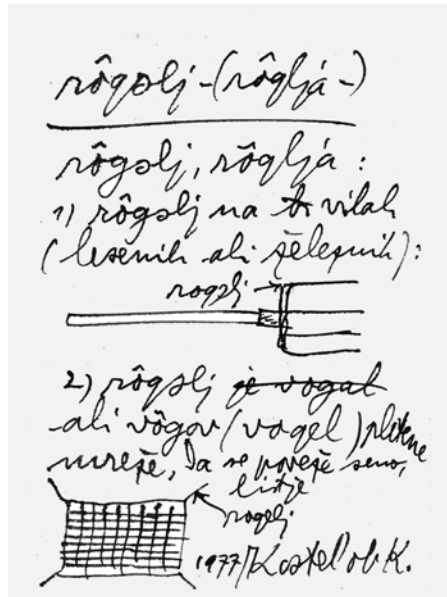 rôgəlj -(rôgljá -)
rôgəlj, rôgljá :
1) rôgəlj na vilah
(lesenih ali železnih):
rogəlj
2) rôgəlj je vogal
ali vôgov (vogel) plitene
mreže, da se poveže seno,
listje
rogelj.
1977/Kostel ob K.